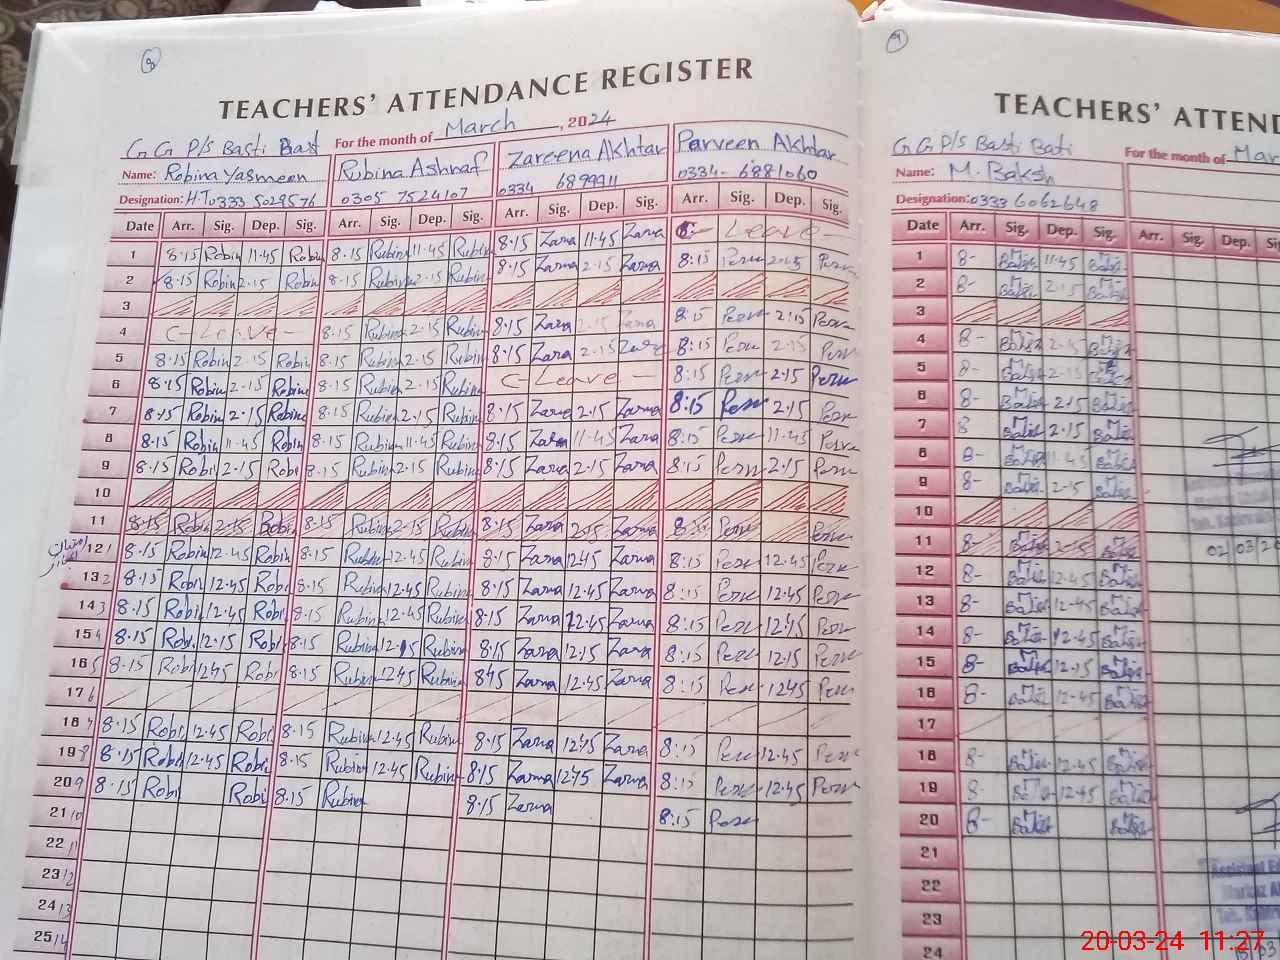 8
TEACHERS' ATTENDANCE REGISTER
For the month of March, 2024
G G P/S Basti Bast
Name: Robina Yasmeen Rubina Ashraf Zareena Akhtar Parveen Akhtar
Designation: H.T 0333 5029576 0305 7524107 0334 6899911 0334-6881060
Date Arr. Sig. Dep. Sig. Arr. Sig. Dep. Sig. Arr. Sig. Dep. Sig. Arr. Sig. Dep. Sig.
1 8.15 Robin 11.45 Robin 8.15 Rubina 11.45 Rubin 8.15 Zarna 11.45 Zarna C- Leave -
2 8.15 Robin 2.15 Robin 8.15 Rubina 2.15 Rubin 8.15 Zarna 2.15 Zarna 8:15 Perv 2.15 Perv
3
4 C-Leave- 8.15 Rubina 2.15 Rubin 8.15 Zara 2.15 Zarna 8:15 Perv 2:15 Perv
5 8.15 Robin 2.15 Robin 8.15 Rubina 2.15 Rubin 8.15 Zara 2.15 Zara 8:15 Perv 2.15 Perv
6 8.15 Robin 2.15 Robin 8.15 Rubina 2.15 Rubina C-Leave - 8.15 Perv 2.15 Perv
7 8.15 Robin 2.15 Robina 8.15 Rubina 2.15 Rubin 8.15 Zarna 2.15 Zarna 8:15 Perv 2.15 Perv
8 8.15 Robin 11.45 Robin 8.15 Rubina 11.45 Rubin 8.15 Zarna 11.45 Zarna 8:15 Perv 11.45 Perv
9 8.15 Robi 2.15 Robi 8.15 Rubina 2.15 Rubin 8.15 Zarna 2.15 Zarna 8:15 Perv 2.15 Perv
10
11 8.15 Robin 2.15 Robi 8.15 Rubina 2.15 Rubin 8.15 Zarna 2.15 Zarna Perv Perv
12 1 8.15 Robin 12.45 Robin 8.15 Rubin 12.45 Rubin 8.15 Zarna 12.45 Zarna 8:15 Perv 12.45 Perv
13 2 8.15 Robi 12.45 Robi 8.15 Rubina 12.45 Rubin 8.15 Zarna 12.45 Zarna 8:15 Perv 12.45 Perv
14 3 8.15 Robi 12.45 Robi 8.15 Rubina 12.45 Rubin 8.15 Zarna 12.45 Zarna 8:15 Perv 12.45 Perv
15 4 8.15 Rob 12.15 Robi 8.15 Rubina 12.15 Rubin 8.15 Zarna 12.15 Zarna 8:15 Perv 12.15 Perv
16 5 8.15 Robi 12.45 Robi 8.15 Rubina 12.45 Rubina 8.45 Zarna 12.45 Zarna 8:15 Perv 12.45 Perv
17 6
18 7 8.15 Robi 12.45 Robi 8.15 Rubina 12.45 Rubin 8.15 Zarna 12.45 Zarna 8:15 Perv 12.45 Perv
19 8 8.15 Robi 12.45 Robi 8.15 Rubin 12.45 Rubin 8.15 Zarna 12.45 Zarna 8:15 Perv 12.45 Perv
20 9 8.15 Robi Robi 8.15 Rubina 8.15 Zarna 8:15 Perv
21 10
22 11
23 12
24 13
25 14
9
TEACHERS' ATTEND
G G P/S Basti Bati For the month of Mar
Name: M. Baksh
Designation: 0333 6062648
Date Arr. Sig. Dep. Sig. Arr. Sig. Dep. Sig
1 8- 11.45
2 8- 2.15
3
4 8- 2.15
5 8- 2.15
6 8- 2.15
7 8 2.15
8 8- 11.45
9 8- 2.15
10
11 8- 2.15
02 03
12 8- 12.45
13 8- 12.45
14 8- 12.45
15 8- 12.15
16 8- 12.45
17
18 8- 12.45
19 8- 12.45
20 8-
21
22
23
24
20-03-24 11:27